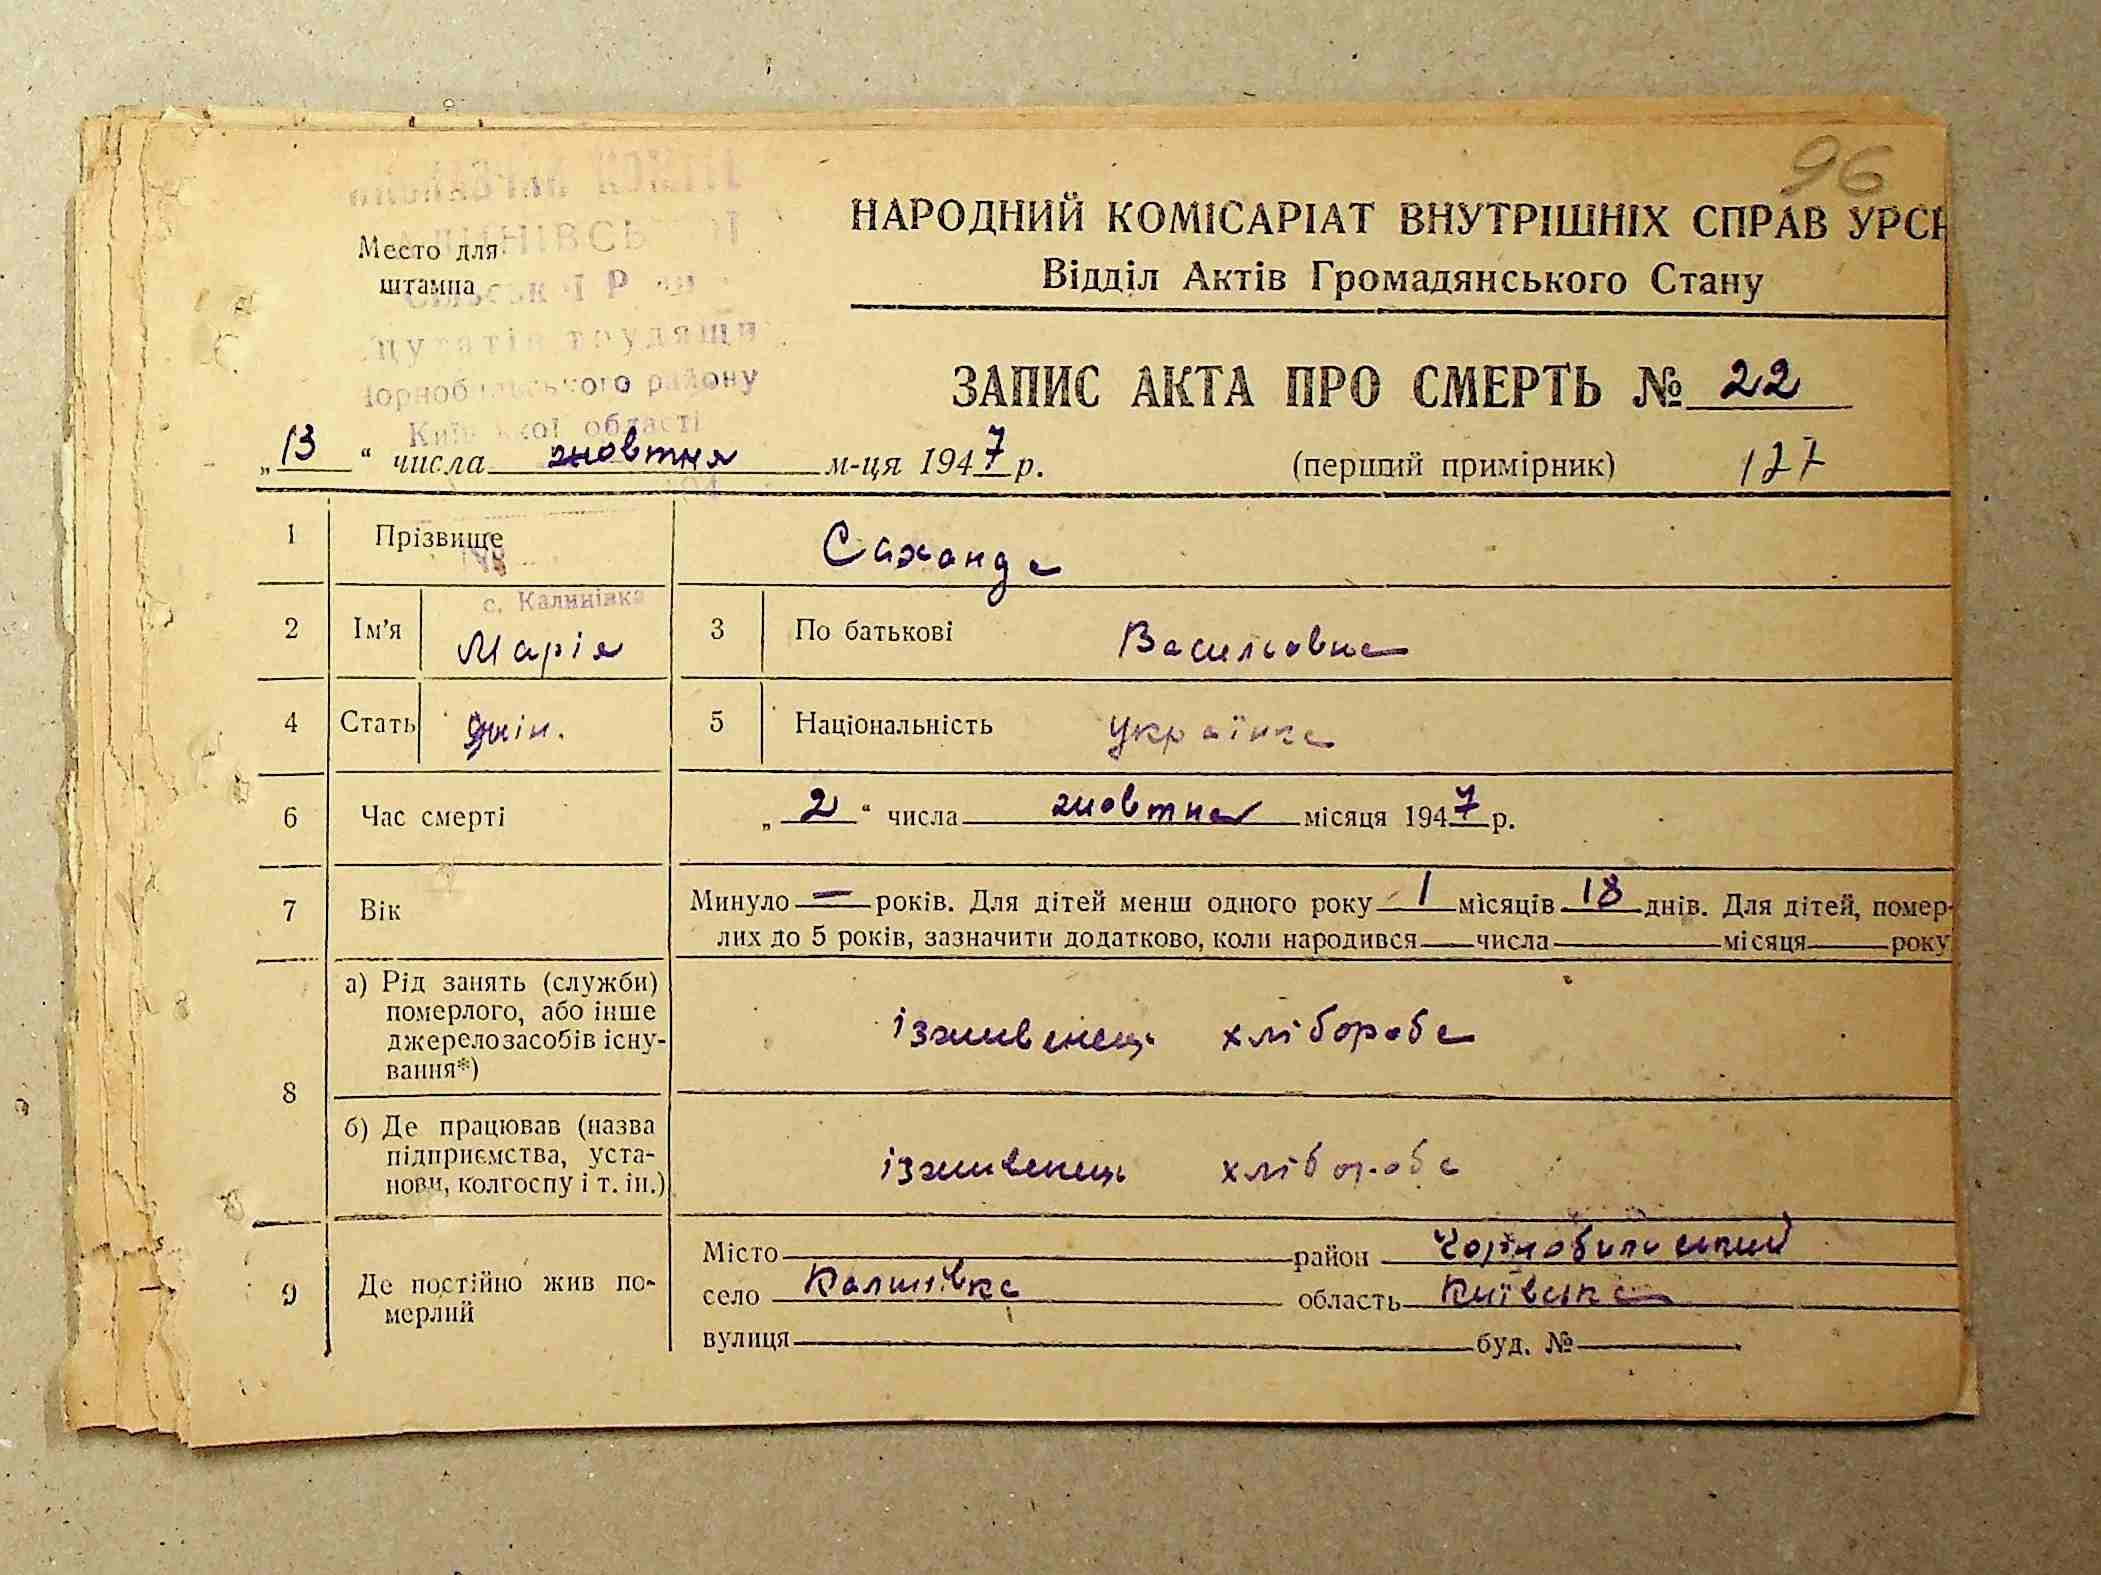 96
НАРОДНИЙ КОМІСАРІАТ ВНУТРІШНІХ СПРАВ УРСР
Відділ Актів Громадянського Стану
Место для
штампа
Чорнобильського району
Київської області
ЗАПИС АКТА ПРО СМЕРТЬ № 22
„13“ числа жовтня м-ця 1947 р. (перший примірник) 127
1 Прізвище Сахонда
с. Калинівка
2 Ім'я Марія 3 По батькові Васильовна
4 Стать жін. 5 Національність Українка
6 Час смерті „2“ числа жовтня місяця 1947 р.
7 Вік Минуло — років. Для дітей менш одного року 1 місяців 18 днів. Для дітей, помер-
лих до 5 років, зазначити додатково, коли народився числа місяця року
8 а) Рід занять (служби)
померлого, або інше
джерело засобів існу-
вання*) ізживенець хлібороба
б) Де працював (назва
підприємства, уста-
нови, колгоспу і т. ін.) ізживенець хлібороба
9 Де постійно жив по-
мерлий
Місто район Чорнобильський
село Калинівка область Київська
вулиця буд. №